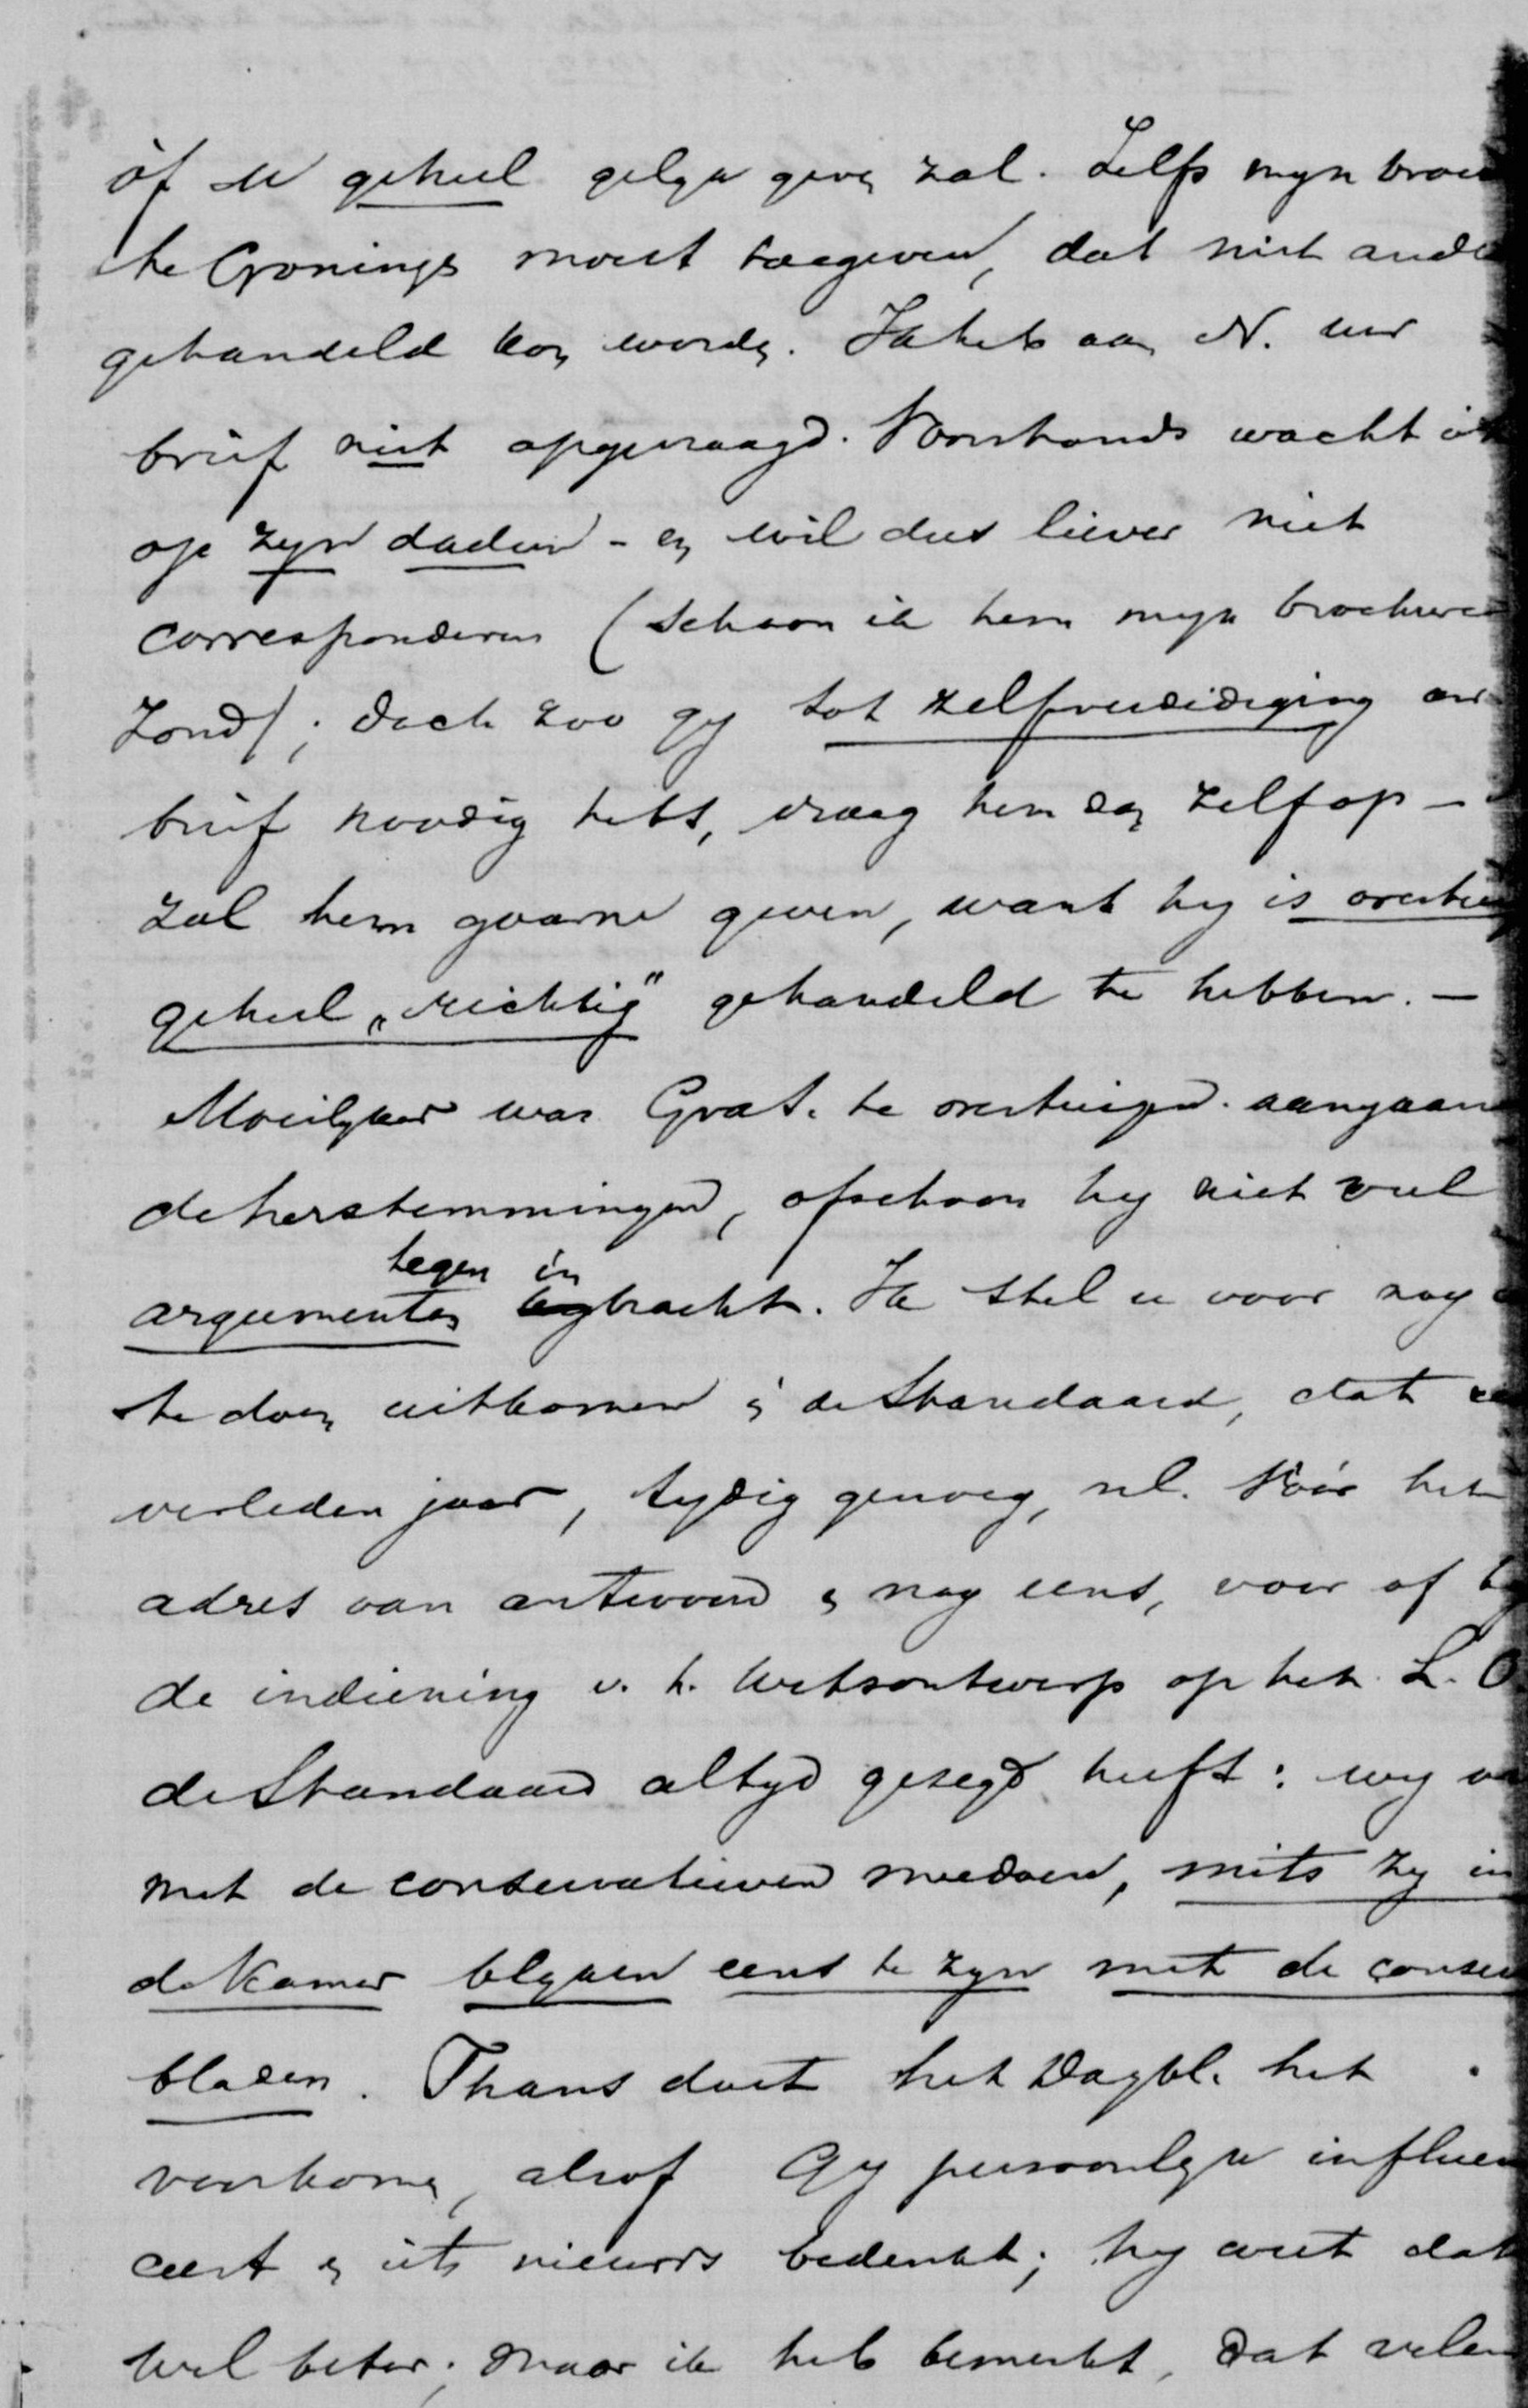 óf u geheel gelyk geven zal. Zelfs myn broed
te Gronings moest toegeven, dat niet ande
gehandeld kon worden. Ik heb aan N. uw
brief niet opgevraagd. Voorhands wacht ik
op zyn daden - en wil dus liever niet
corresponderen (schoon ik hem myn brochure
zond); doch zoo gy tot zelfverdediging uw
brief noodig hebt, vraag hem dan zelf op -
zal hem gaarne geven, want hy is overtui
geheel "richtig" gehandeld te hebben. -
Moeilyker was Grat. te overtuigen aangaan
de herstemmingen, ofschoon hy niet veel
argumenten tegen in bracht. Ik stel u voor nog
te doen uitkomen in de Standaard, dat
verleden jaar, tydig genoeg, nl. vóór het
adres van antwoord en nog eens, voor of by
de indiening v. h. wetsontwerp op het L. O.
de Standaard altyd gezegd heeft: wy
met de conservatieven meedoen, mits zy in
de Kamer blyken eens te zyn met de conser
bladen. Thans doet het Dagbl. het
voorkomen, alsof Gy persoonlyk influen
ceert en iets nieuws bedenkt; hy weet dat
wel beter; maar ik heb bemerkt, dat velen